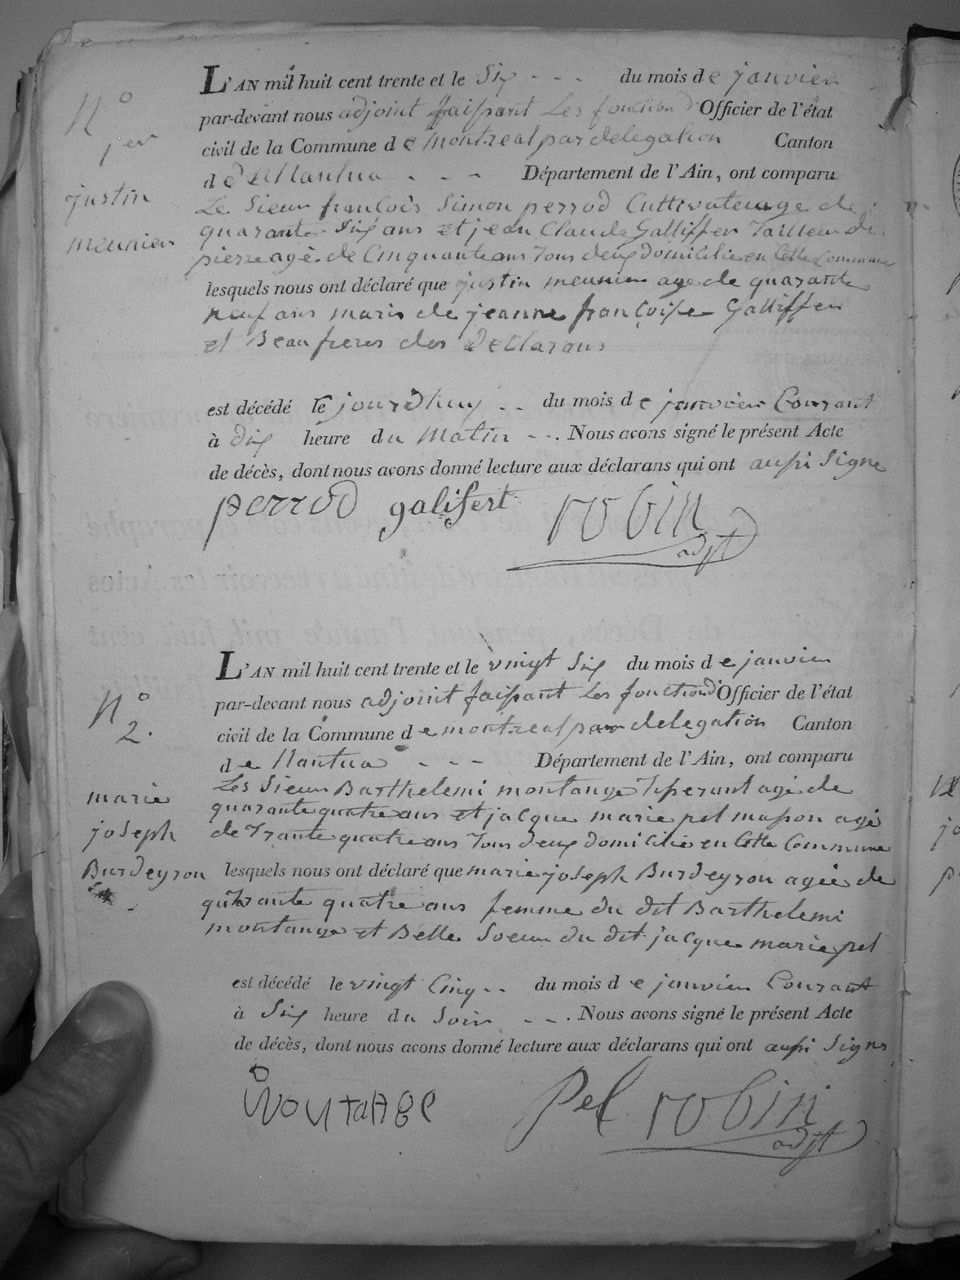 N.o
1er
justin
meunier
L'AN mil huit cent trente et le Six - - - du mois de janvier
par-devant nous adjoint faisant Les fonction d'Officier de l'état
civil de la Commune de Montreal par delegation Canton
d e Nantua - - - Département de l'Ain, ont comparu
Le Sieur françois Simon perrod Cultivateur age de
quarante Six ans et jean Claude Galliffer Tailleur de
pierre agé de Cinquante ans Tous deux domicilié en Cette Commune
lesquels nous ont déclaré que justin meunier age de quarante
neuf ans maris de jeanne françoise Galliffer
et Beaufreres des Declarans
est décédé le jourdhuy - - du mois de janvier Courant
à dix heure du Matin - - . Nous avons signé le présent Acte
de décès, dont nous avons donné lecture aux déclarans qui ont aussi Signe
perrod galifert robin
adjt
N.o
2.
marie
joseph
Burdeyron
L'AN mil huit cent trente et le vingt Six du mois de janvier
par-devant nous adjoint faisant Les fonction d'Officier de l'état
civil de la Commune de montreal par delegation Canton
de Nantua - - - Département de l'Ain, ont comparu
Les Sieur Barthelemi montange Tiserant agé de
quarante quatre ans et jacque marie pel masson agé
de Trante quatre ans Tous deux domicilié en Cette Commune
lesquels nous ont déclaré que marie joseph Burdeyron agée de
quarante quatre ans femme du dit Barthelemi
montange et Belle Soeur du dit jacque marie pel
est décédé le vingt Cinq - - du mois de janvier Courant
à Six heure du Soir - - . Nous avons signé le présent Acte
de décès, dont nous avons donné lecture aux déclarans qui ont aussi Signe
MONTANGE pel robin
adjt